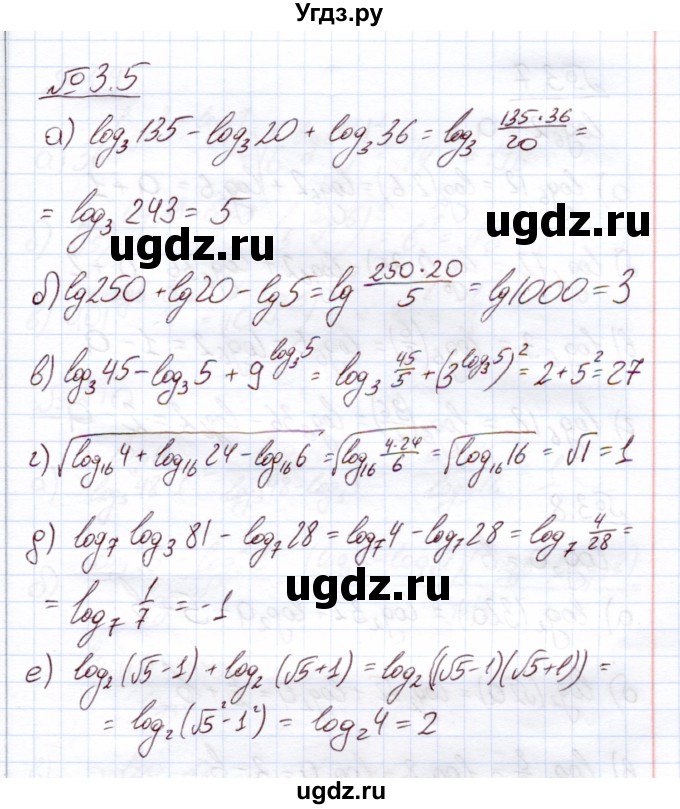 Угдз.ру
№ 3.5
а) log₃135 - log₃20 + log₃36 = log₃ (135·36)/20 =
= log₃243 = 5
ugdz.ru ugdz.ru
б) lg250 + lg20 - lg5 = lg (250·20)/5 = lg1000 = 3
в) log₃45 - log₃5 + 9^(log₃5) = log₃ 45/5 + (3^(log₃5))² = 2 + 5² = 27
г) √(log₁₆4 + log₁₆24 - log₁₆6) = √(log₁₆ (4·24)/6) = √(log₁₆16) = √1 = 1
д) log₇ log₃81 - log₇28 = log₇4 - log₇28 = log₇ 4/28 =
= log₇ 1/7 = -1
ugdz.ru ugdz.ru
е) log₂(√5-1) + log₂(√5+1) = log₂((√5-1)(√5+1)) =
= log₂(√5²-1²) = log₂4 = 2
ugdz.ru